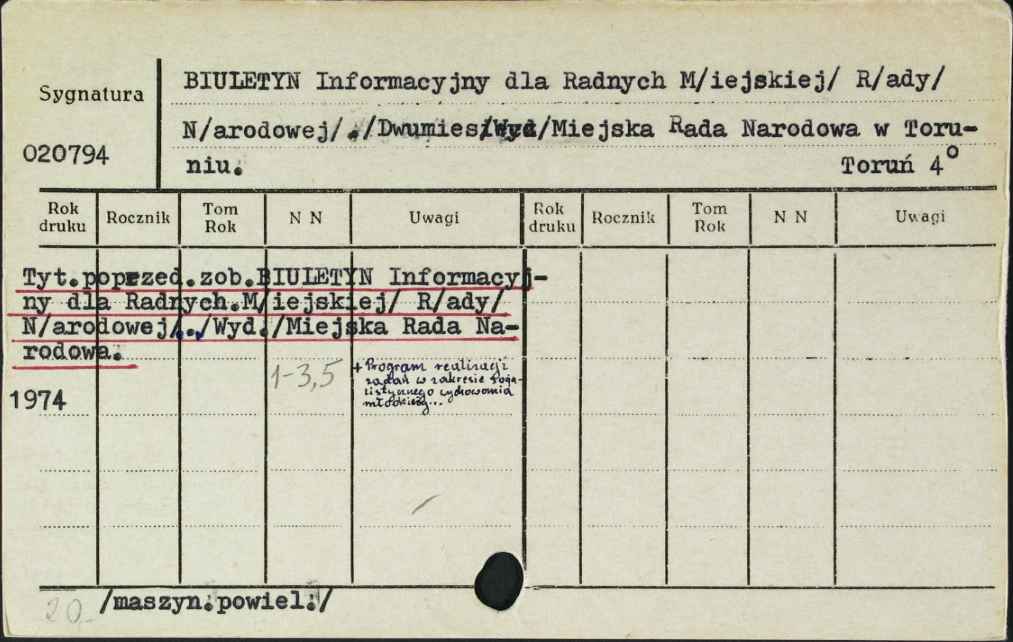 BIULETYN Informacyjny dla Radnych M/iejskiej/ R/ady/
Sygnatura
N/arodowej/./Dwumies/Wyd/Miejska Rada Narodowa w Toru-
020794
niu. Toruń 4°
Rok druku Rocznik Tom Rok N N Uwagi Rok druku Rocznik Tom Rok N N Uwagi
Tyt.poprzed.zob.BIULETYN Informacyj-
ny dla Radnych.M/iejskiej/ R/ady/
N/arodowej/../Wyd./Miejska Rada Na-
rodowa.
1974 1-3,5 + Program realizacji
zadań w zakresie
wychowania
młodzieży...
20
/maszyn.powiel./